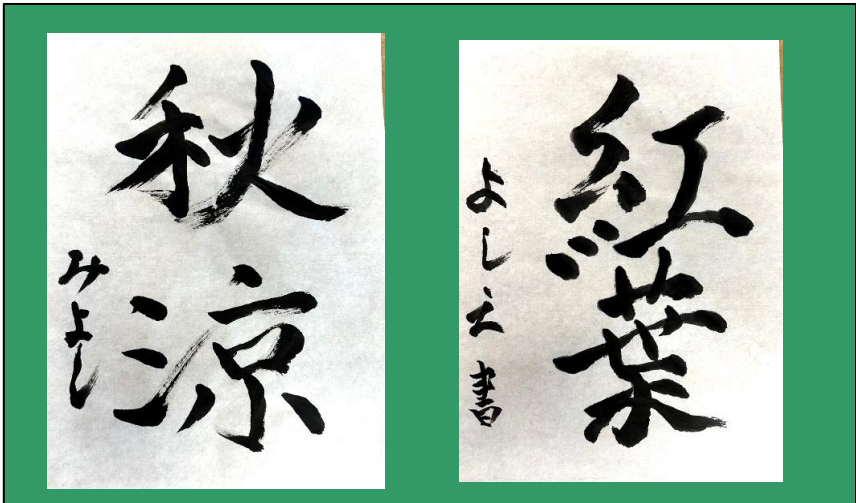 秋涼
みよし
紅葉
よしえ書